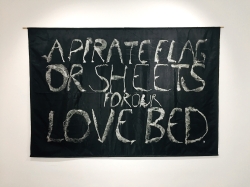 A PIRATE FLAG
OR SHEETS
FOR OUR
LOVE BED.